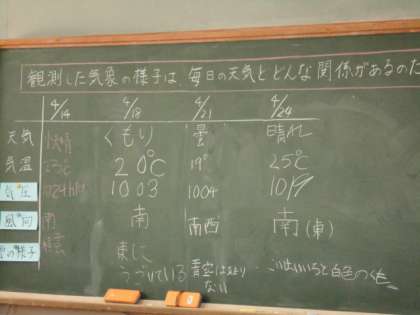 観測した気象の様子は、毎日の天気とどんな関係があるのだ
4/14 4/18 4/21 4/24
天気 快晴 くもり 曇 晴れ
気温 23℃ 20℃ 19° 25℃
気圧 1024hPa 1003 1004 1019
風向 南 南 南西 南(東)
の様子 東に
うごいている 青空はあまり
ない 白色のくも